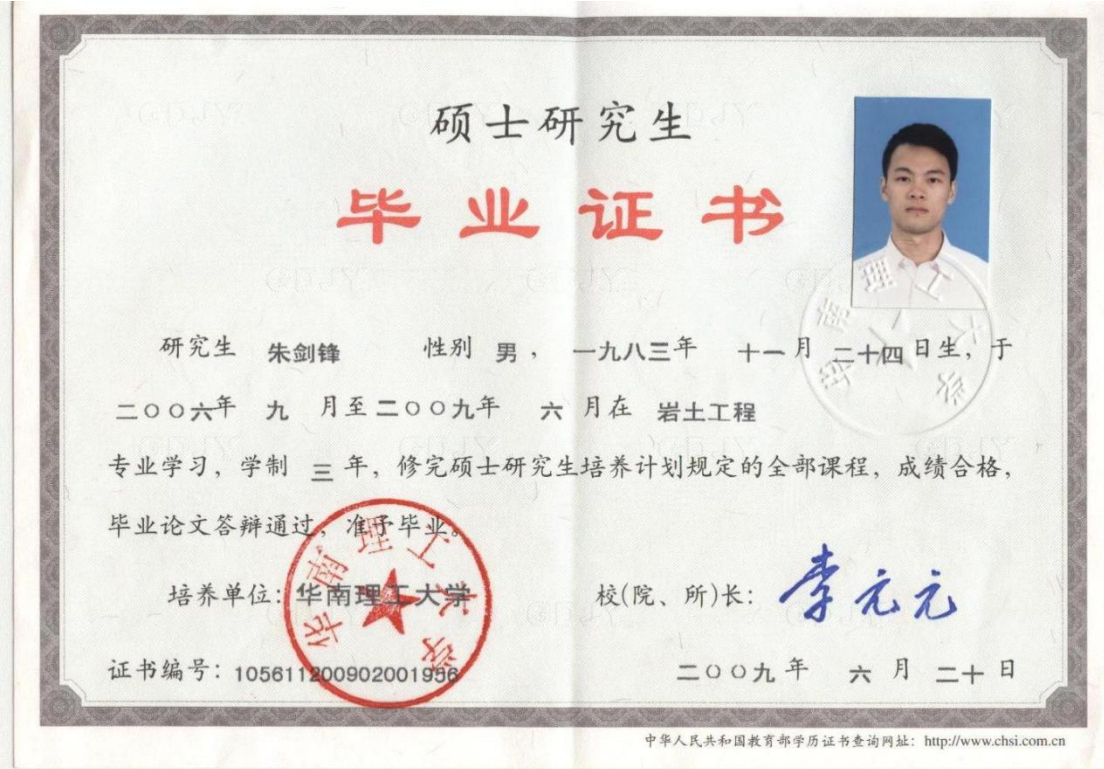 硕士研究生
毕业证书
研究生 朱剑锋 性别 男，一九八三年 十一月 二十四日生，于
二〇〇六年 九 月至二〇〇九年 六 月在 岩土工程
专业学习，学制 三 年，修完硕士研究生培养计划规定的全部课程，成绩合格，
毕业论文答辩通过，准予毕业。
培养单位：华南理工大学
校(院、所)长：李元元
证书编号：105611200902001956
二〇〇九年 六 月 二十 日
华南理工大学
华南理工大学
中华人民共和国教育部学历证书查询网址：http://www.chsi.com.cn